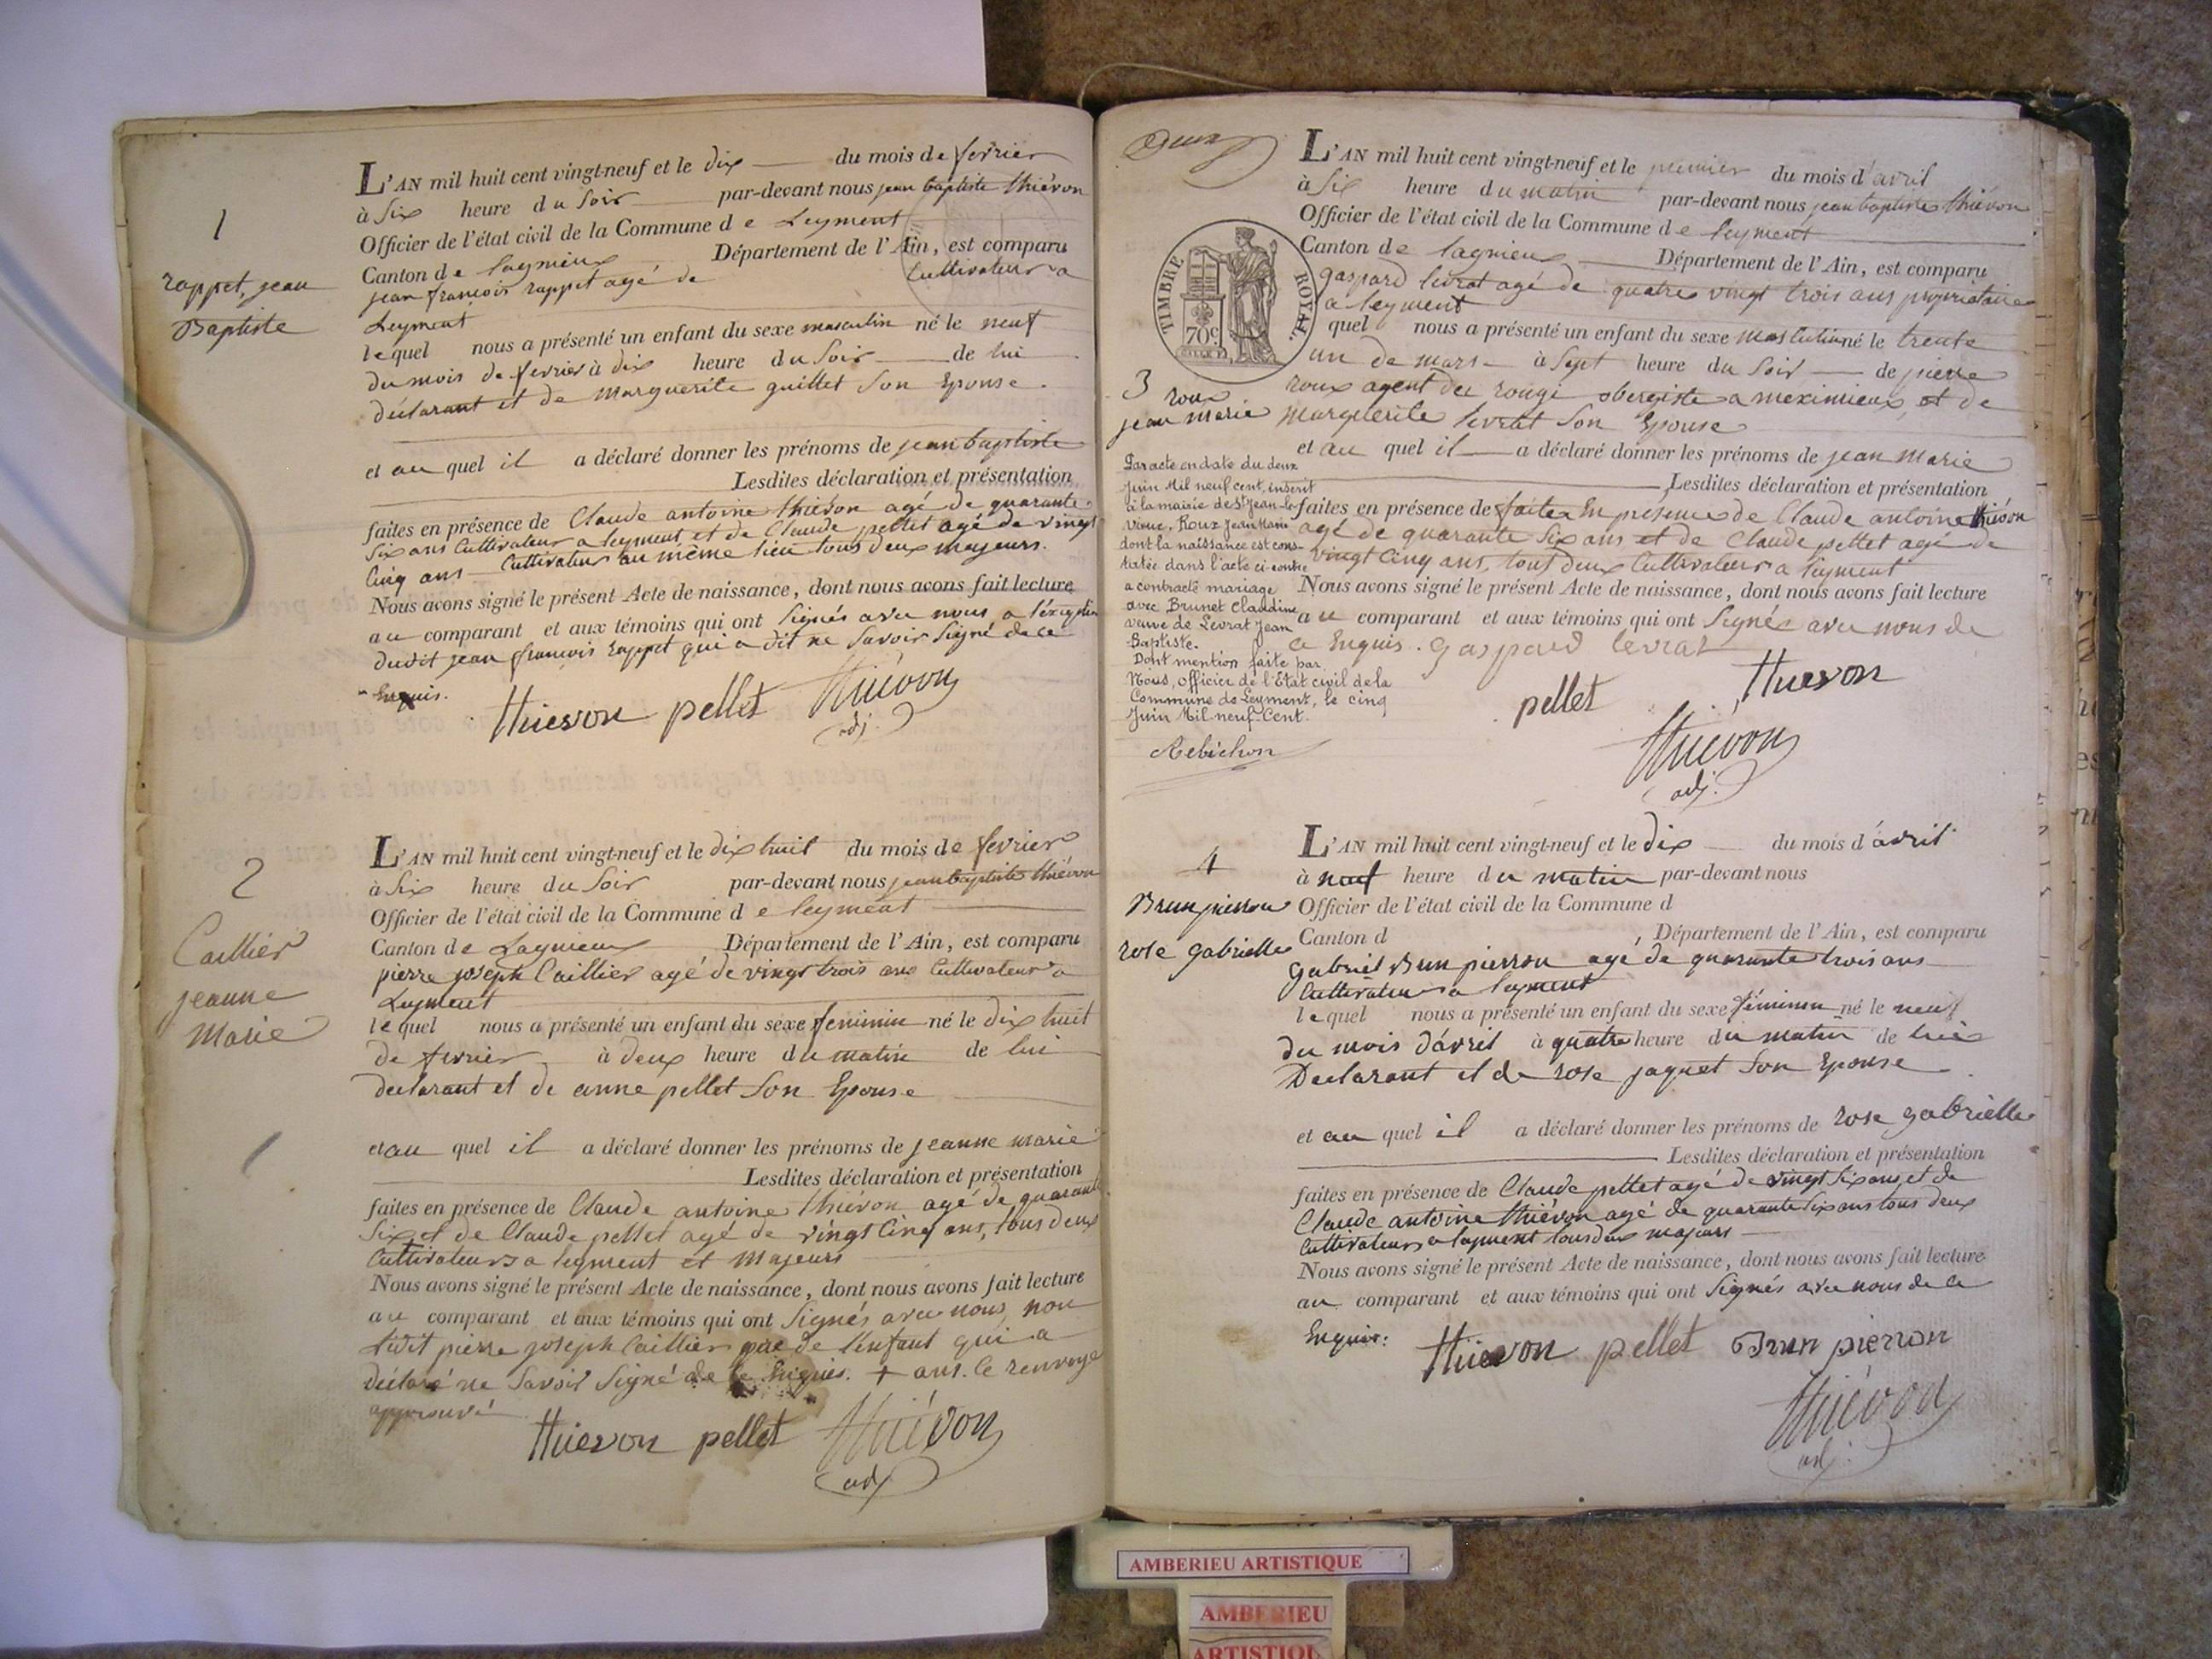 1
rappet, jean
Baptiste
L'AN mil huit cent vingt-neuf et le dix du mois de fevrier
à Six heure du Soir par-devant nous jean baptiste thiévon
Officier de l'état civil de la Commune de Leyment
Canton de lagnieux Département de l'Ain, est comparu
jean françois rappet agé de Cultivateur a
Leyment
lequel nous a présenté un enfant du sexe masculin né le neuf
du mois de fevrier à dix heure du Soir de lui
déclarant et de Marguerite guillet Son Epouse.
et au quel il a déclaré donner les prénoms de jean baptiste
Lesdites déclaration et présentation
faites en présence de Claude antoine thiévon agé de quarante
Six ans Cultivateur a leyment, et de Claude pellet agé de vingt
Cinq ans Cultivateur au même lieu tous deux majeurs.
Nous avons signé le présent Acte de naissance, dont nous avons fait lecture
au comparant et aux témoins qui ont Signés avec nous a l'éxception
dudit jean françois rappet qui a dit ne Savoir Signé de ce
Enquis.
thievon pellet Thiévon
adj.
2
Caillier
jeanne
Marie
L'AN mil huit cent vingt-neuf et le dix huit du mois de fevrier
à Six heure du Soir par-devant nous jean baptiste thiévon
Officier de l'état civil de la Commune de leyment
Canton de Lagnieux Département de l'Ain, est comparu
pierre joseph Caillier agé de vingt trois ans Cultivateur a
Leyment
lequel nous a présenté un enfant du sexe feminin né le dix huit
de fevrier à deux heure du matin de lui
declarant et de anne pellet Son Epouse
et au quel il a déclaré donner les prénoms de jeanne marie
Lesdites déclaration et présentation
faites en présence de Claude antoine thiévon agé de quarante
Six et de Claude pellet agé de vingt Cinq ans, tous deux
Cultivateurs a leyment et Majeurs
Nous avons signé le présent Acte de naissance, dont nous avons fait lecture
au comparant et aux témoins qui ont Signés avec nous, non
ledit pierre joseph Caillier pere de l'enfant qui a
déclaré ne Savoir Signé de ce Enquis. + ans. le renvoye
approuvé
thievon pellet Thiévon
adj
Deux
TIMBRE ROYAL
70c.
3
roux
jean marie
L'AN mil huit cent vingt-neuf et le premier du mois d'avril
à Six heure du matin par-devant nous jean baptiste thiévon
Officier de l'état civil de la Commune de leyment
Canton de lagnieux Département de l'Ain, est comparu
gaspard levrat agé de quatre vingt trois ans propriétaire
a leyment
quel nous a présenté un enfant du sexe masculin né le trente
un de mars à Sept heure du Soir de pierre
roux agent du rougi obergiste a meximieux, et de
Marguerite levrat Son Epouse
et au quel il a déclaré donner les prénoms de jean Marie
Lesdites déclaration et présentation
faites en présence de faite En presence de Claude antoine thiévon
agé de quarante Six ans et de Claude pellet agé de
vingt Cinq ans, tout deux Cultivateurs a leyment
Nous avons signé le présent Acte de naissance, dont nous avons fait lecture
au comparant et aux témoins qui ont Signés avec nous de
ce Enquis. gaspard levrat
pellet thievon
Thiévon
adj.
Par acte en date du deux
Juin Mil neuf cent, inscrit
à la mairie de St Jean-le-
vieux, Roux Jean Marie
dont la naissance est cons-
tatée dans l'acte ci-contre
a contracté mariage
avec Brunet Claudine
veuve de Levrat Jean
Baptiste.
Dont mention faite par
Nous, officier de l'Etat civil de la
Commune de Leyment, le cinq
Juin Mil-neuf-Cent.
Rebichon
4
Brun pierron
rose gabrielle
L'AN mil huit cent vingt-neuf et le dix du mois d'avril
à neuf heure du matin par-devant nous
Officier de l'état civil de la Commune d
Canton d , Département de l'Ain, est comparu
gabriel Brun pierron agé de quarante trois ans
Cultivateur a leyment
lequel nous a présenté un enfant du sexe féminin né le neuf
du mois d'avril à quatre heure du matin de lui
Declarant et de rose jaquet Son Epouse
et au quel il a déclaré donner les prénoms de rose gabrielle
Lesdites déclaration et présentation
faites en présence de Claude pellet agé de vingt Six ans, et de
Claude antoine thiévon agé de quarante Six ans tous deux
Cultivateurs a leyment tous deux majeurs
Nous avons signé le présent Acte de naissance, dont nous avons fait lecture
au comparant et aux témoins qui ont Signés avec nous de ce
Enquis.
thievon pellet Brun pierron
Thiévon
adj.
AMBERIEU ARTISTIQUE
AMBERIEU
ARTISTIQUE